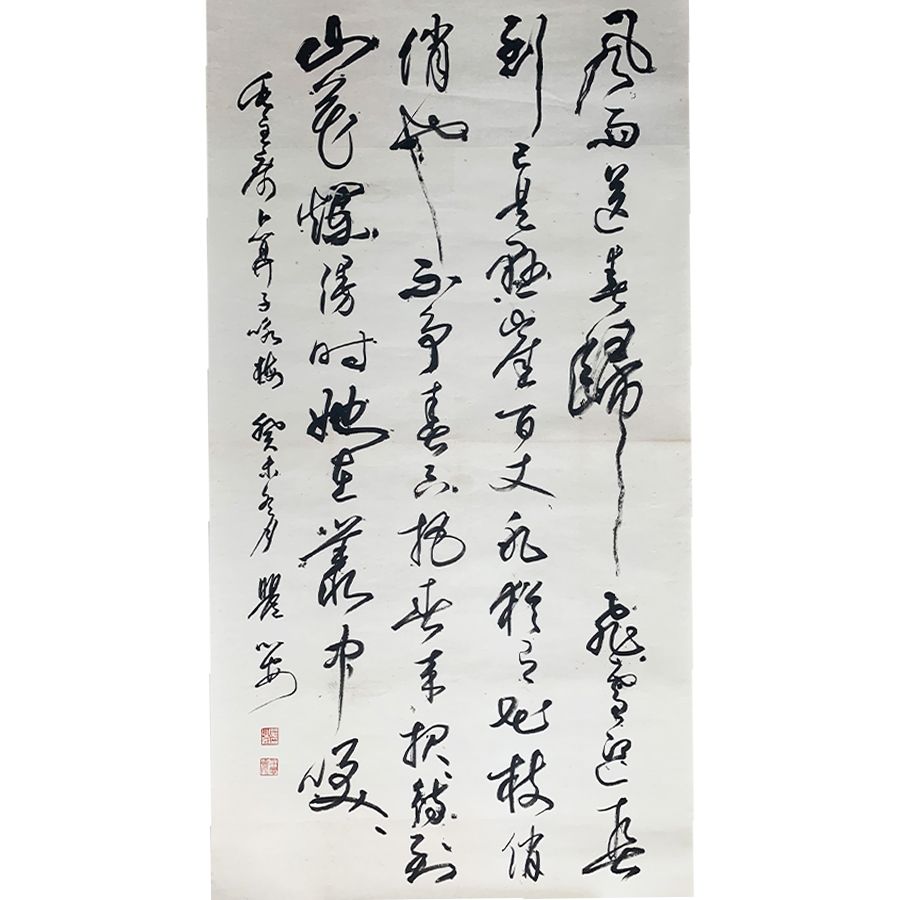 风雨送春歸飛雪迎春
到已是懸崖百丈冰猶有花枝俏
俏也不争春只把春来报待到
山花爛漫时她在叢中咲
毛主席卜算子咏梅 癸未冬月